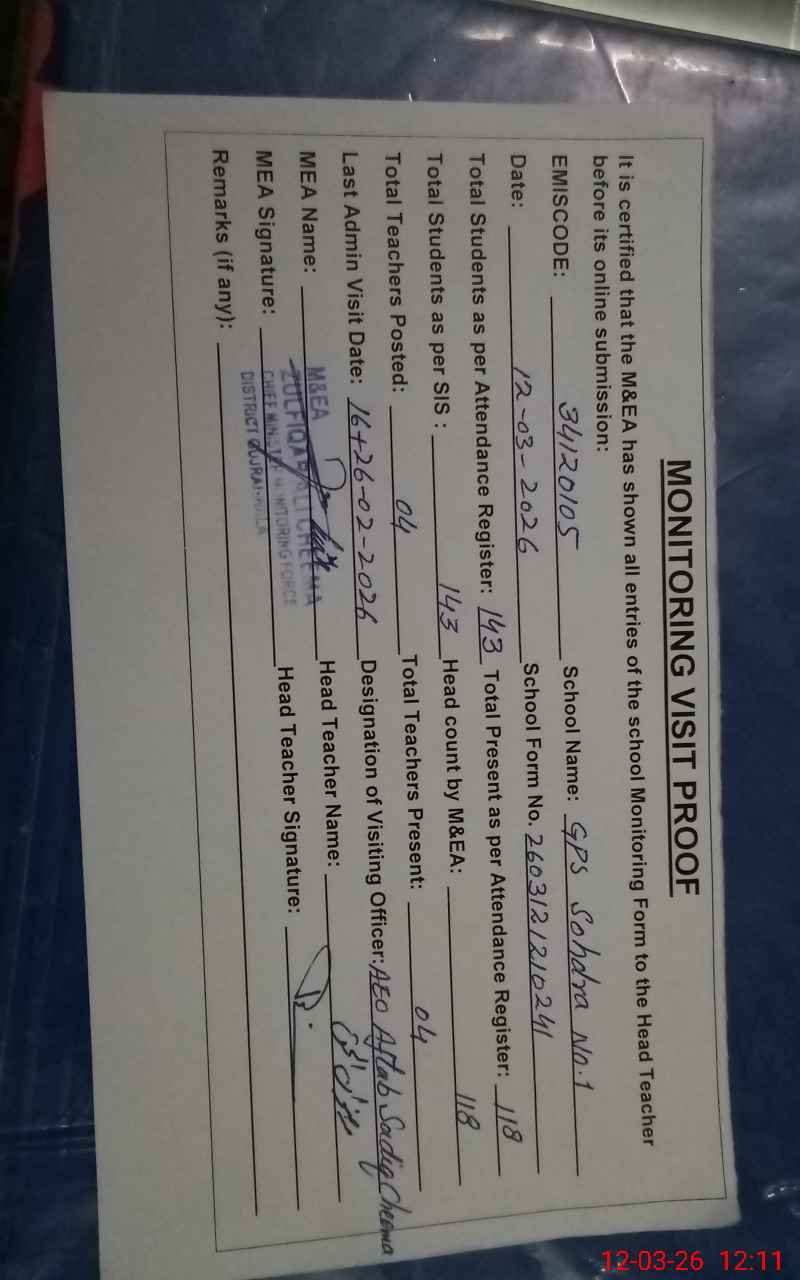 MONITORING VISIT PROOF
It is certified that the M&EA has shown all entries of the school Monitoring Form to the Head Teacher
before its online submission:
EMISCODE: 34120105 School Name: GPS Sohdra No.1
Date: 12-03-2026 School Form No. 2603121210241
Total Students as per Attendance Register: 143 Total Present as per Attendance Register: 118
Total Students as per SIS : 143 Head count by M&EA: 118
Total Teachers Posted: 04 Total Teachers Present: 04
Last Admin Visit Date: 16+26-02-2026 Designation of Visiting Officer: AEO Aftab Sadiq Cheema
MEA Name: Head Teacher Name:
MEA Signature: Head Teacher Signature:
Remarks (if any):
M&EA
ZULFIQAR ALI CHEEMA
CHIEF MINISTER MONITORING FORCE
DISTRICT GUJRANWALA
12-03-26 12:11